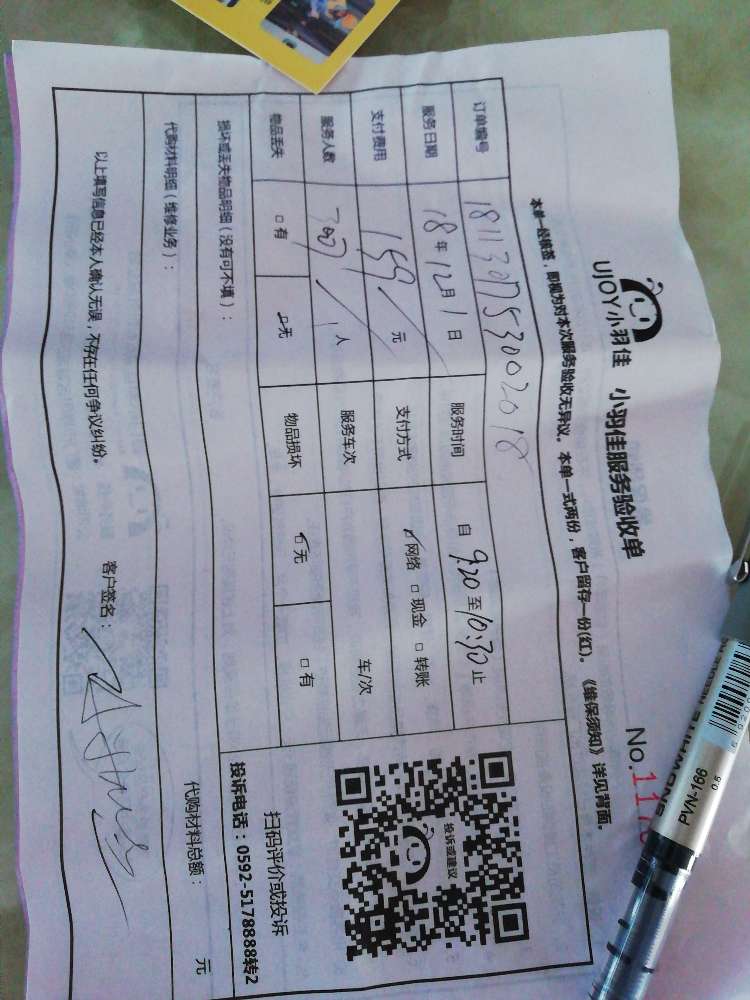 UJOY小羽佳 小羽佳服务验收单
No.117
本单一经核签，即视为对本次服务验收无异议。本单一式两份，客户留存一份(红)。《维保须知》详见背面。
订单编号 1811301753002018
服务日期 18年12月1日 服务时间 自9:20至10:30止
支付费用 159/元 支付方式 ☑网络 □现金 □转账
服务人数 /人 服务车次 车/次
物品丢失 □有 ☑无 物品损坏 ☑无 □有
损坏或丢失物品明细（没有可不填）：
投诉或建议
扫码评价或投诉
投诉电话：0592-5178888转2
代购材料明细（维修业务）： 代购材料总额： 元
以上填写信息已经本人确认无误，不存在任何争议纠纷。 客户签名：
SNOWHITE
PVN-166
0.5